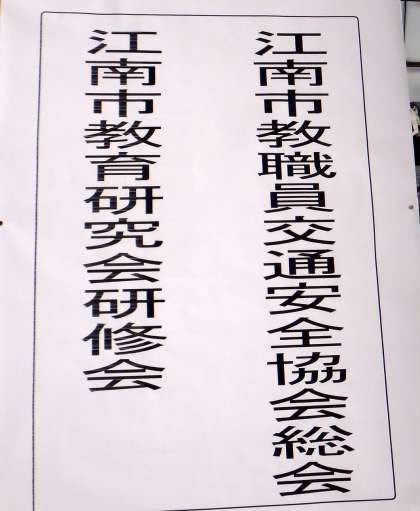 江南市教職員交通安全協会総会
江南市教育研究会研修会